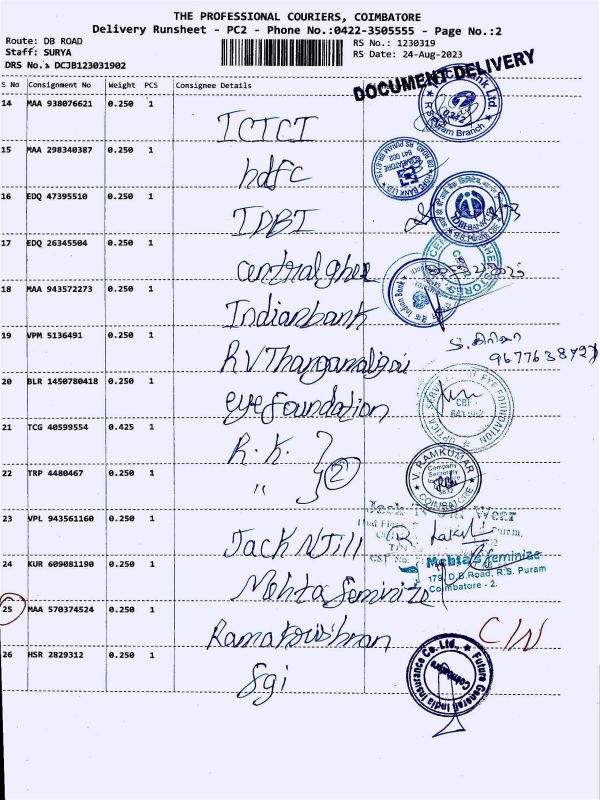 THE PROFESSIONAL COURIERS, COIMBATORE
Delivery Runsheet - PC2 - Phone No.:0422-3505555 - Page No.:2
Route: DB ROAD
Staff: SURYA
DRS No.: DCJB123031902
RS No.: 1230319
RS Date: 24-Aug-2023
DOCUMENT DELIVERY
S No Consignment No Weight PCS Consignee Details
14 MAA 938076621 0.250 1 ICICI
15 MAA 298340387 0.250 1 hdfc
16 EDQ 47395510 0.250 1 IDBI
17 EDQ 26345504 0.250 1 central
18 MAA 943572273 0.250 1 Indianbank
19 VPM 5136491 0.250 1 RV
20 BLR 1450780418 0.250 1 eye foundation
21 TCG 40599554 0.425 1 R.K.
22 TRP 4480467 0.250 1 "
2
23 VPL 943561160 0.250 1 Jack N Jill
24 KUR 609081190 0.250 1 Mehta feminize
25 MAA 570374524 0.250 1
26 HSR 2829312 0.250 1 Sgi
RS Puram Branch
IDBI BANK
Indian Bank
EYE FOUNDATION
V. RAMKUMAR
Company Secretary
COIMBATORE
Mehta's feminize
179, D.B.Road, R.S. Puram
Coimbatore - 2.
C/N
Future Generali India Insurance Co. Ltd.,
Coimbatore